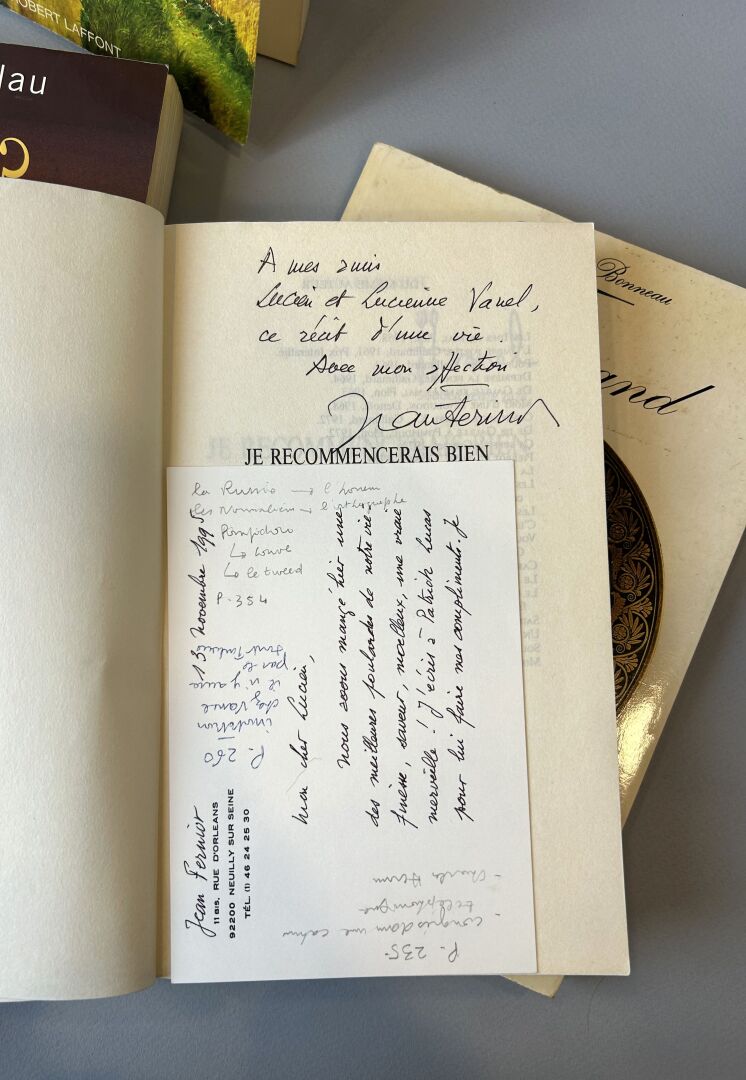 ROBERT LAFFONT
lau
Bonneau
and
A mes amis
Lucien et Lucienne Vanel,
ce récit d'une vie.
Avec mon affection
Jean Ferniot
JE RECOMMENCERAIS BIEN
la Russie → l'honneur
les Normaliens → l'orthographe
Pompidou
↳ Louvre
↳ le tweed
P. 354
Jean Ferniot
11 BIS, RUE D'ORLEANS
92200 NEUILLY SUR SEINE
TÉL. (1) 46 24 25 30
13 novembre 1995
Mon cher Lucien,
nous avons mangé hier une
des meilleures poulardes de notre vie.
Finesse, saveur, moelleux, une vraie
merveille ! J'écris à Patrick Lucas
pour lui faire mes compliments. Je
P. 260
invitation
chez Vance
il n'y aura
par le
P. 235
- congrès dans une
- téléphonique
- Charles